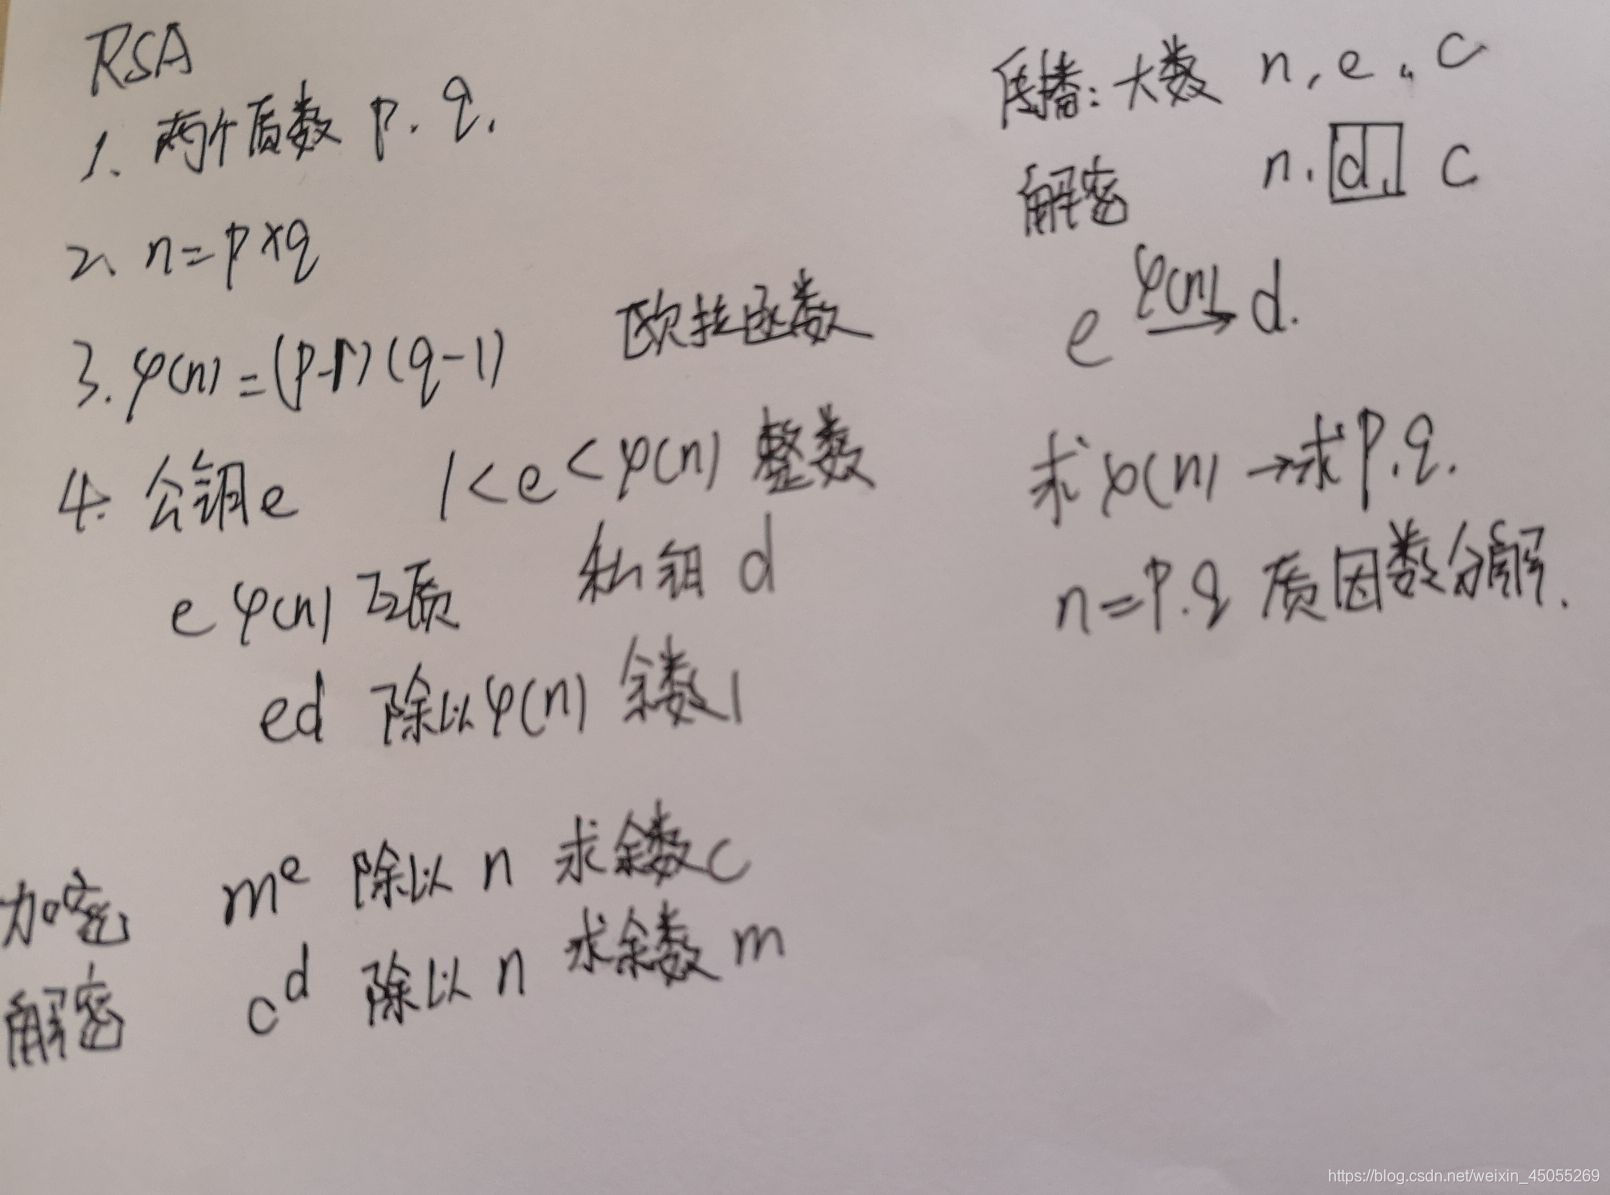 RSA
1、两个质数 p. q.
2、n=p×q
3. φ(n)=(p-1)(q-1) 欧拉函数
4. 公钥e 1<e<φ(n) 整数
e φ(n) 互质 私钥 d
ed 除以φ(n) 余数1
加密 mᵉ 除以 n 求余数c
解密 cᵈ 除以 n 求余数 m
传播: 大数 n, e, c
解密 n, d, c
e φ(n)→ d.
求φ(n) →求p.q.
n=p.q 质因数分解.
https://blog.csdn.net/weixin_45055269